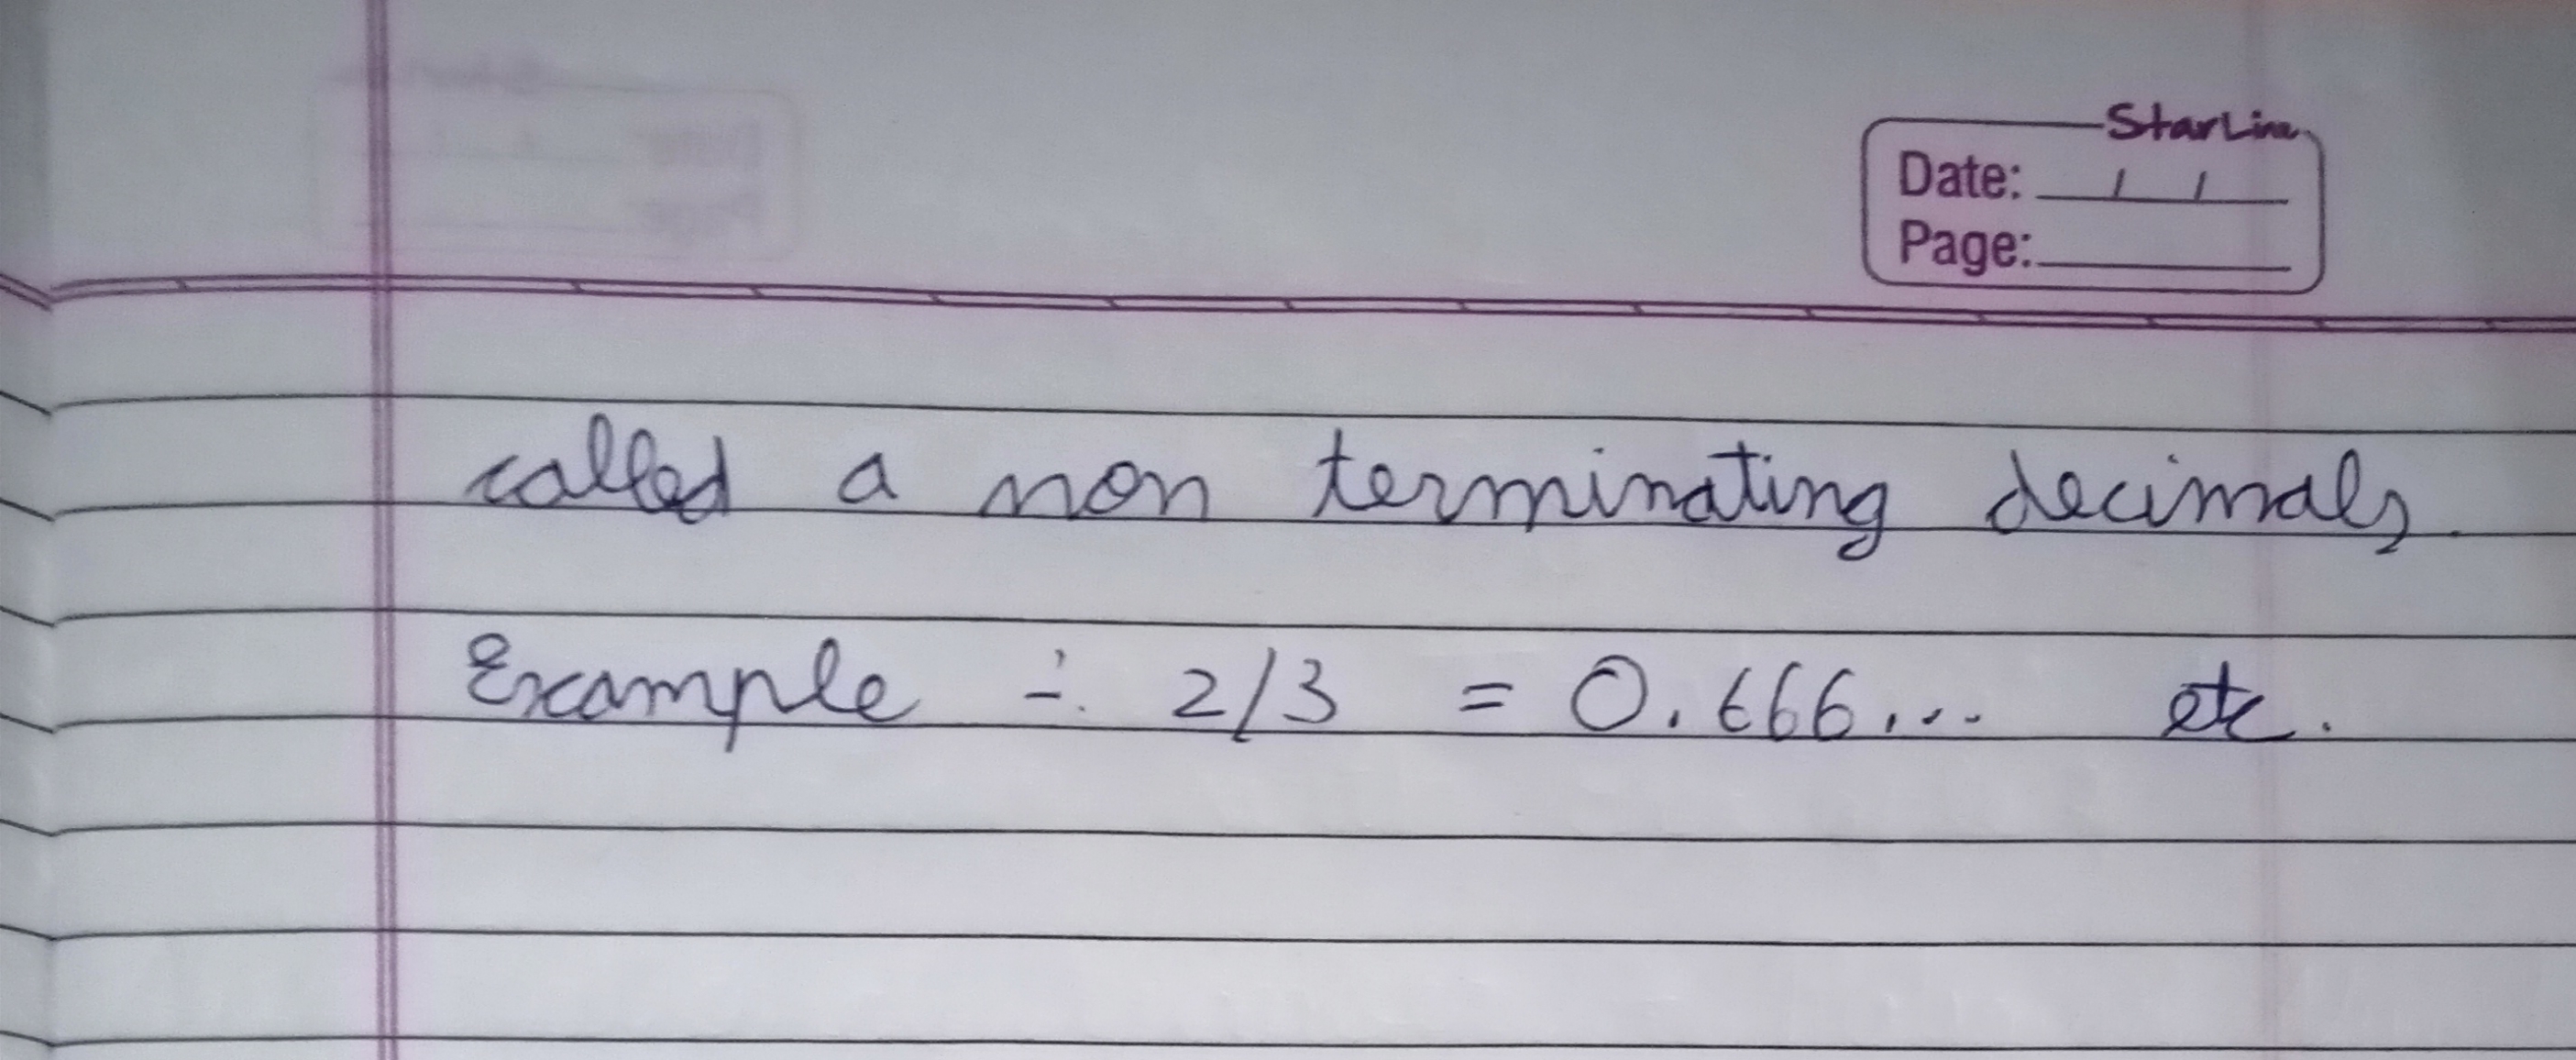 StarLine
Date: / /
Page:
called a non terminating decimals.
Example ÷ 2/3 = 0.666... etc.